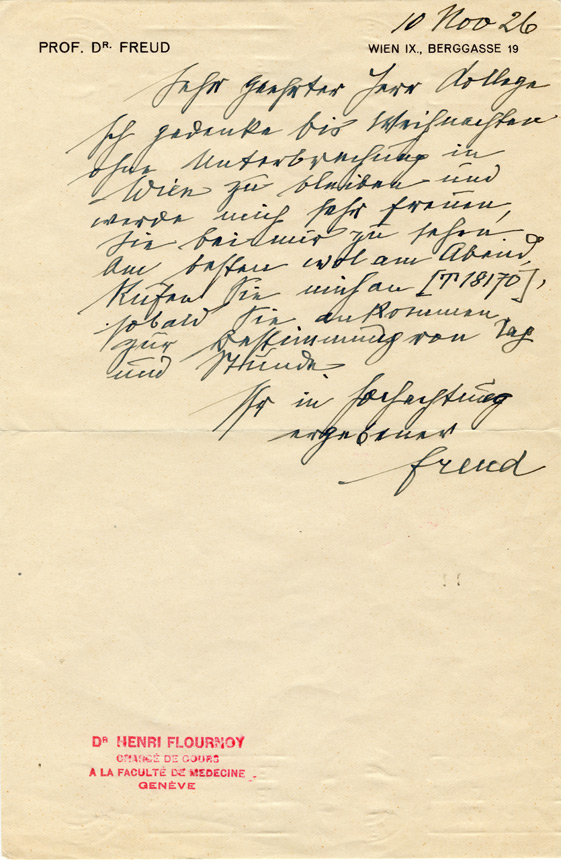 10 Nov 26
PROF. DR. FREUD
WIEN IX., BERGGASSE 19
Sehr geehrter Herr Kollege
Ich gedenke bis Weihnachten
ohne Unterbrechung in
Wien zu bleiben und
werde mich sehr freuen,
Sie bei mir zu sehen,
Am besten wol am Abend.
Rufen Sie mich an [T 18170],
sobald Sie ankommen,
zur Bestimmung von Tag
und Stunde
Ihr in Hochachtung
ergebener
Freud
DR HENRI FLOURNOY
CHARGÉ DE COURS
A LA FACULTÉ DE MEDECINE
GENÈVE